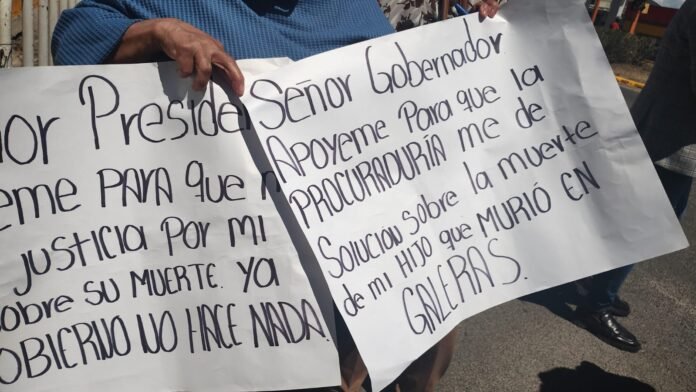 Señor Presiden
eme PARA que
justicia Por mi
sobre su MUERTE. Ya
GOBIERNO NO HACE NADA.
Señor Gobernador
Apoyeme Para que la
PROCURADURÍA me de
Solucion sobre la muerte
de mi HIJO que MURIÓ EN
GALERAS.